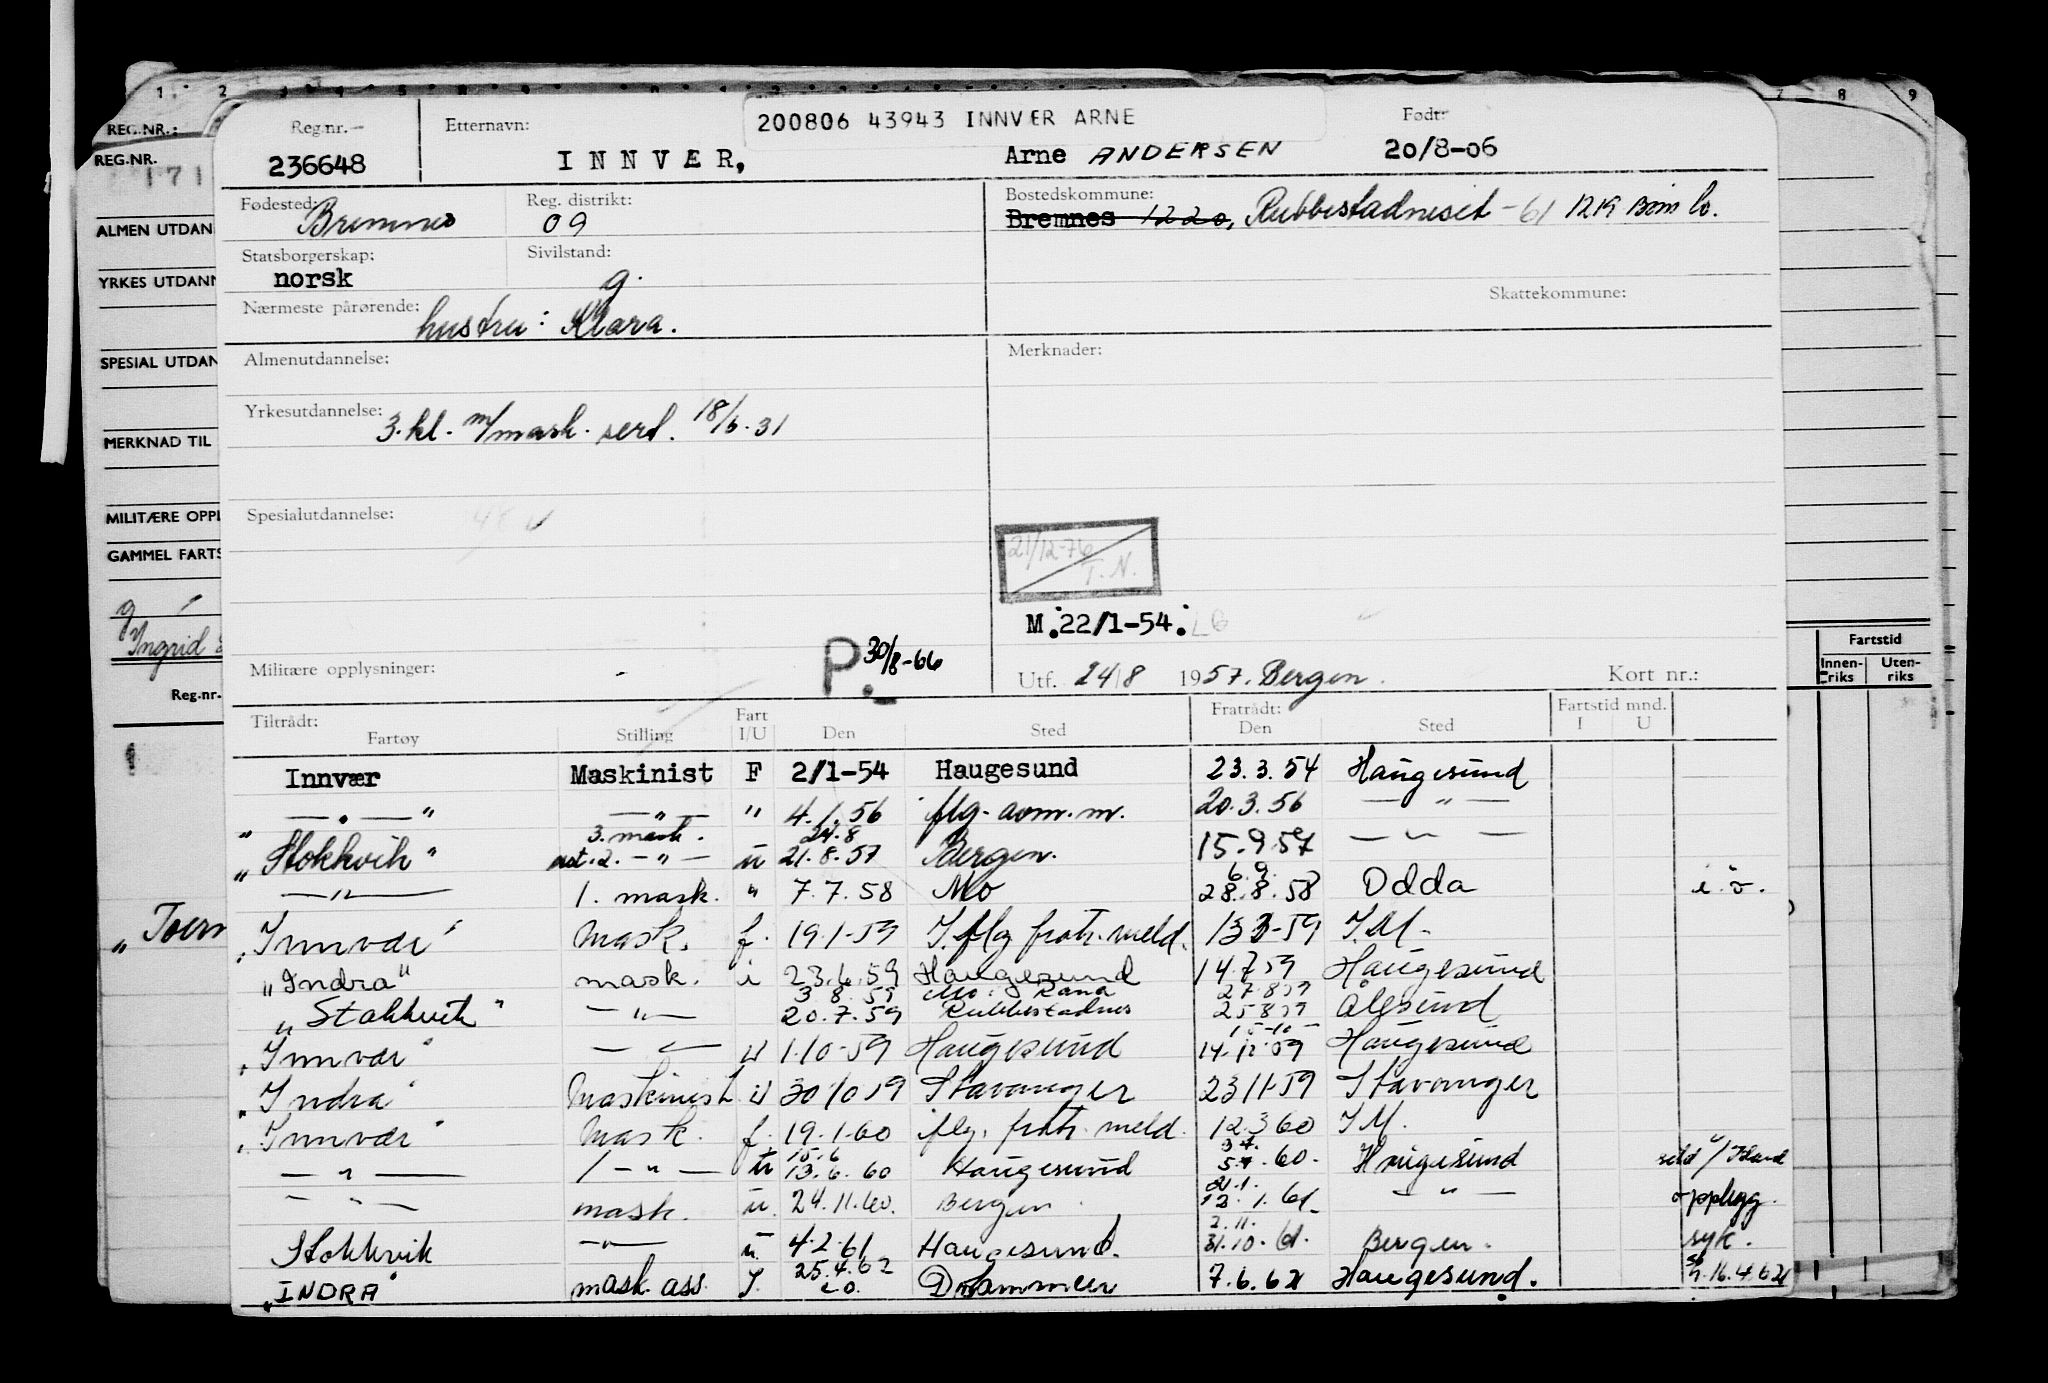 1 2 3 4 5 7 8 9
REG.NR.:
REG.NR.
171
ALMEN UTDAN
YRKES UTDANN
SPESIAL UTDAN
MERKNAD TIL
MILITÆRE OPPL
GAMMEL FARTS
g
Yngrid
Reg.nr.
"Toern
Fartstid
Innen-riks Uten-riks
Reg.nr. Etternavn: 200806 43943 INNVÆR ARNE Født:
236648 INNVÆR, Arne ANDERSEN 20/8-06
Fødested: Bremnes Reg. distrikt: 09 Bostedskommune: Bremnes 1220, Rubbestadneset -61 1219 Bømlo.
Statsborgerskap: norsk Sivilstand: g.
Skattekommune:
Nærmeste pårørende: hustru: Klara.
Almenutdannelse: Merknader:
Yrkesutdannelse: 3.kl. m/mask. sert. 18/6.31
Spesialutdannelse:
21/12-76 T.N.
M.22/1-54.
P. 30/8-66
Militære opplysninger: Utf. 24/8 1957. Bergen. Kort nr.:
Tiltrådt: Fart Fratrådt: Fartstid mnd.
Fartøy Stilling I/U Den Sted Den Sted I U
Innvær Maskinist F 2/1-54 Haugesund 23.3.54 Haugesund
" — . — " — " — " 4.1.56 iflg. avm.m. 20.3.56 — " —
3. mask. 24.8
"Stokkvik" ast. 2. — " — u 21.8.57 Bergen. 15.9.57 — " —
6.9.
— " — 1. mask. " 7.7.58 Mo 28.8.58 Odda i.ø.
"Innvær" Mask. f. 19.1-59 I.flg fratr. meld. 13 3-59 I.M.
"Indra" mask. i 23.6.59 Haugesund 14.7.59 Haugesund
3 8 59 Mo i Rana 27.8.59
"Stokkvik" — " — 20.7.59 Rubbestadnes 25.8.59 Ålesund
"Innvær" — " — U 1.10-59 Haugesund 14.12.59 Haugesund
"Indra" Maskinist U 30/10 59 Stavanger 23/11-59 Stavanger
"Innvær" Mask. f. 19.1-60 iflg. fratr. meld. 12.3 60 I.M.
15.6 3.7.
— " — 1 — " — u 13.6.60 Haugesund 5.7.60. Haugesund sild v/Island
21.1.
— " — mask. u. 24.11.60. Bergen 12.1.61. — " — opplegg.
2.11.
Stokkvik — " — u. 4.2.61 Haugesund. 31.10.61. Bergen. syk.
"INDRA" mask. ass. I. 25.4.62 Drammen 7.6.62 Haugesund. 16.4.62